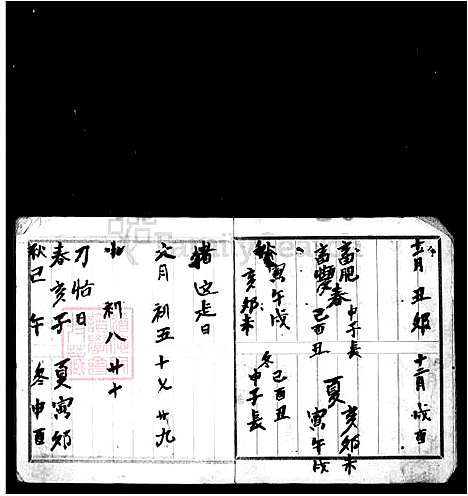 十一月 丑 卯 十二月 戌 酉
畜肥 春 申子辰 夏 亥卯未
巳酉丑 寅午戌
秋 寅午戌 冬 巳酉丑
亥卯未 申子辰
猪 走日
六月 初五 十七 廿九
初八 廿十
刀怡日
春 亥 子 夏 寅 卯
秋 巳 午 冬 申 酉
FamilySearch